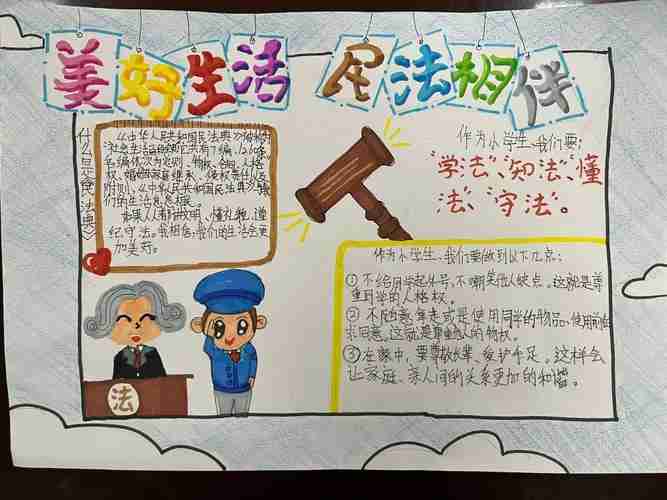 美好生活 民法相伴
什么是《民法典》
《中华人民共和国民法典》被称为
社会生活百科全书,它共有7编、1260条,
各编依次为总则、物权、合同、人格
权、婚姻家庭、继承、侵权责任以及
附则。《中华人民共和国民法典》与我
们的生活息息相关。
如果人人都讲文明、懂礼貌、遵
纪守法。我相信,我们的生活会更
加美好。
作为小学生,我们要:
"学法"、"知法"、"懂
法"、"守法"。
作为小学生,我们要做到以下几点:
① 不给同学起外号,不嘲笑他人缺点。这就是尊
重同学的人格权。
② 不随意拿走或是使用同学的物品,使用前征
求同意。这就是尊重他人的物权。
③ 在家中,要尊敬长辈、爱护手足。这样会
让家庭、家人间的关系更加的和谐。
法